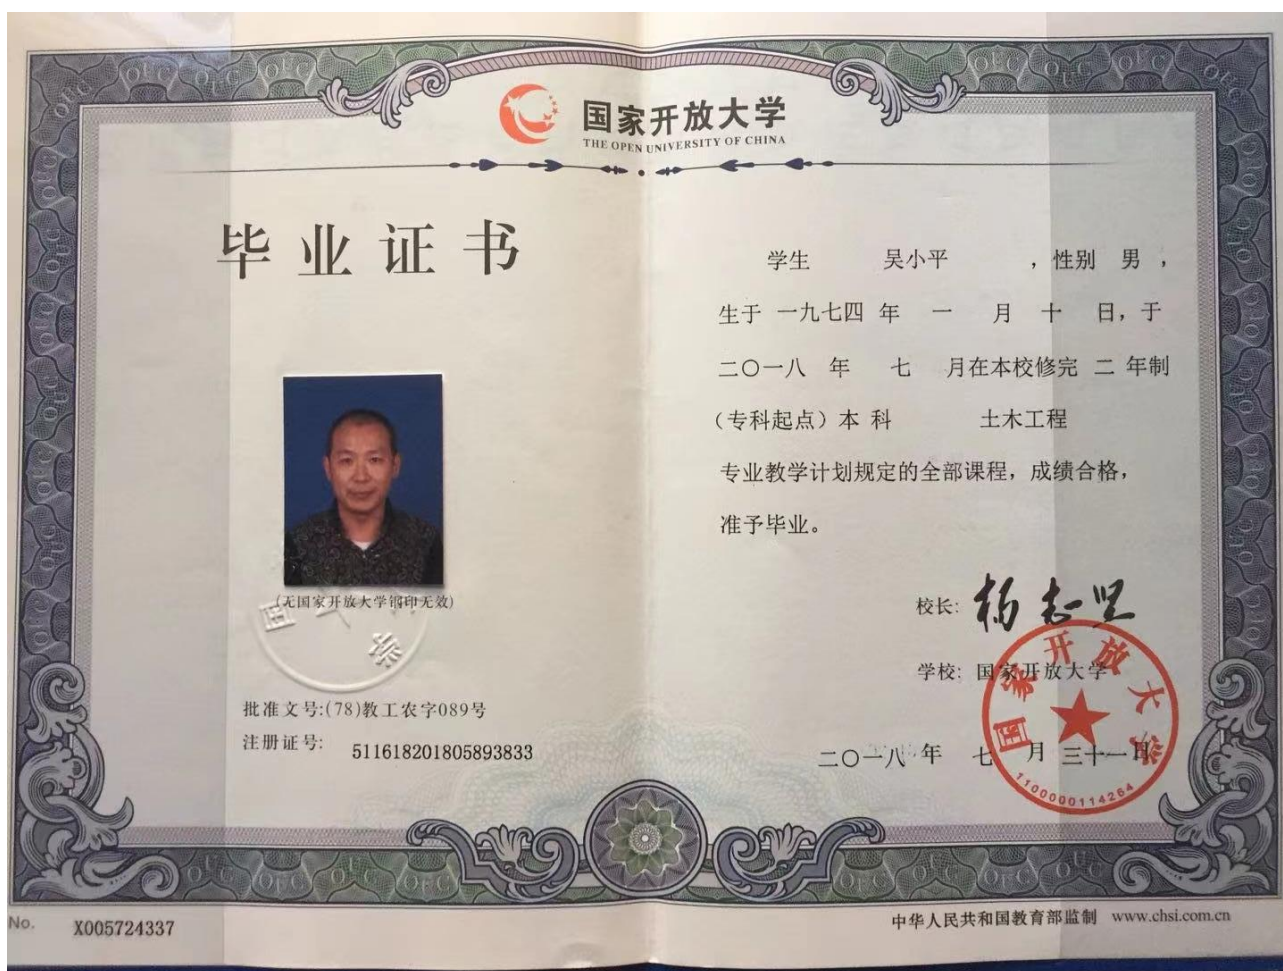 国家开放大学
THE OPEN UNIVERSITY OF CHINA
毕业证书
(无国家开放大学钢印无效)
批准文号:(78)教工农字089号
注册证号: 511618201805893833
学生 吴小平 ，性别 男 ，
生于 一九七四 年 一 月 十 日，于
二〇一八 年 七 月在本校修完 二 年制
（专科起点）本 科 土木工程
专业教学计划规定的全部课程，成绩合格，
准予毕业。
校长: 杨志坚
学校: 国家开放大学
二〇一八 年 七 月 三十一 日
国家开放大学
1100000114264
No. X005724337
中华人民共和国教育部监制 www.chsi.com.cn